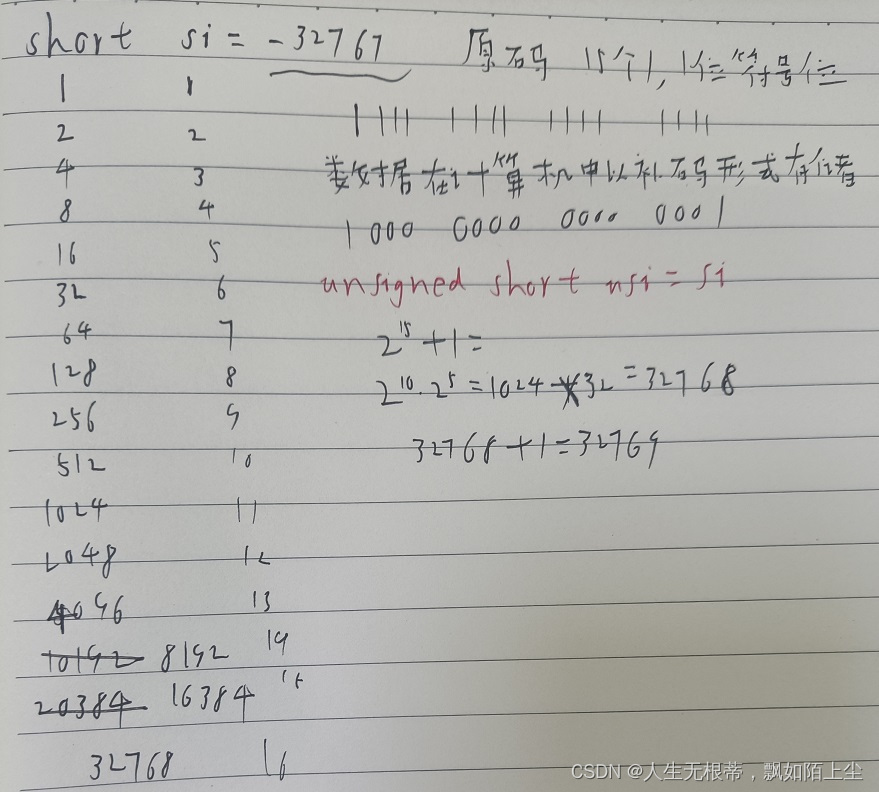 short si = -32767 原码 15个1,1位符号位
1 1 1111 1111 1111 1111
2 2
4 3 数据在计算机中以补码形式存储着
8 4 1000 0000 0000 0001
16 5
32 6 unsigned short usi = si
64 7 2^15 + 1 =
128 8 2^10 · 2^5 = 1024 × 32 = 32768
256 9
512 10 32768 + 1 = 32769
1024 11
2048 12
4096 13
10192 8192 14
20384 16384 15
32768 16
CSDN @人生无根蒂,飘如陌上尘